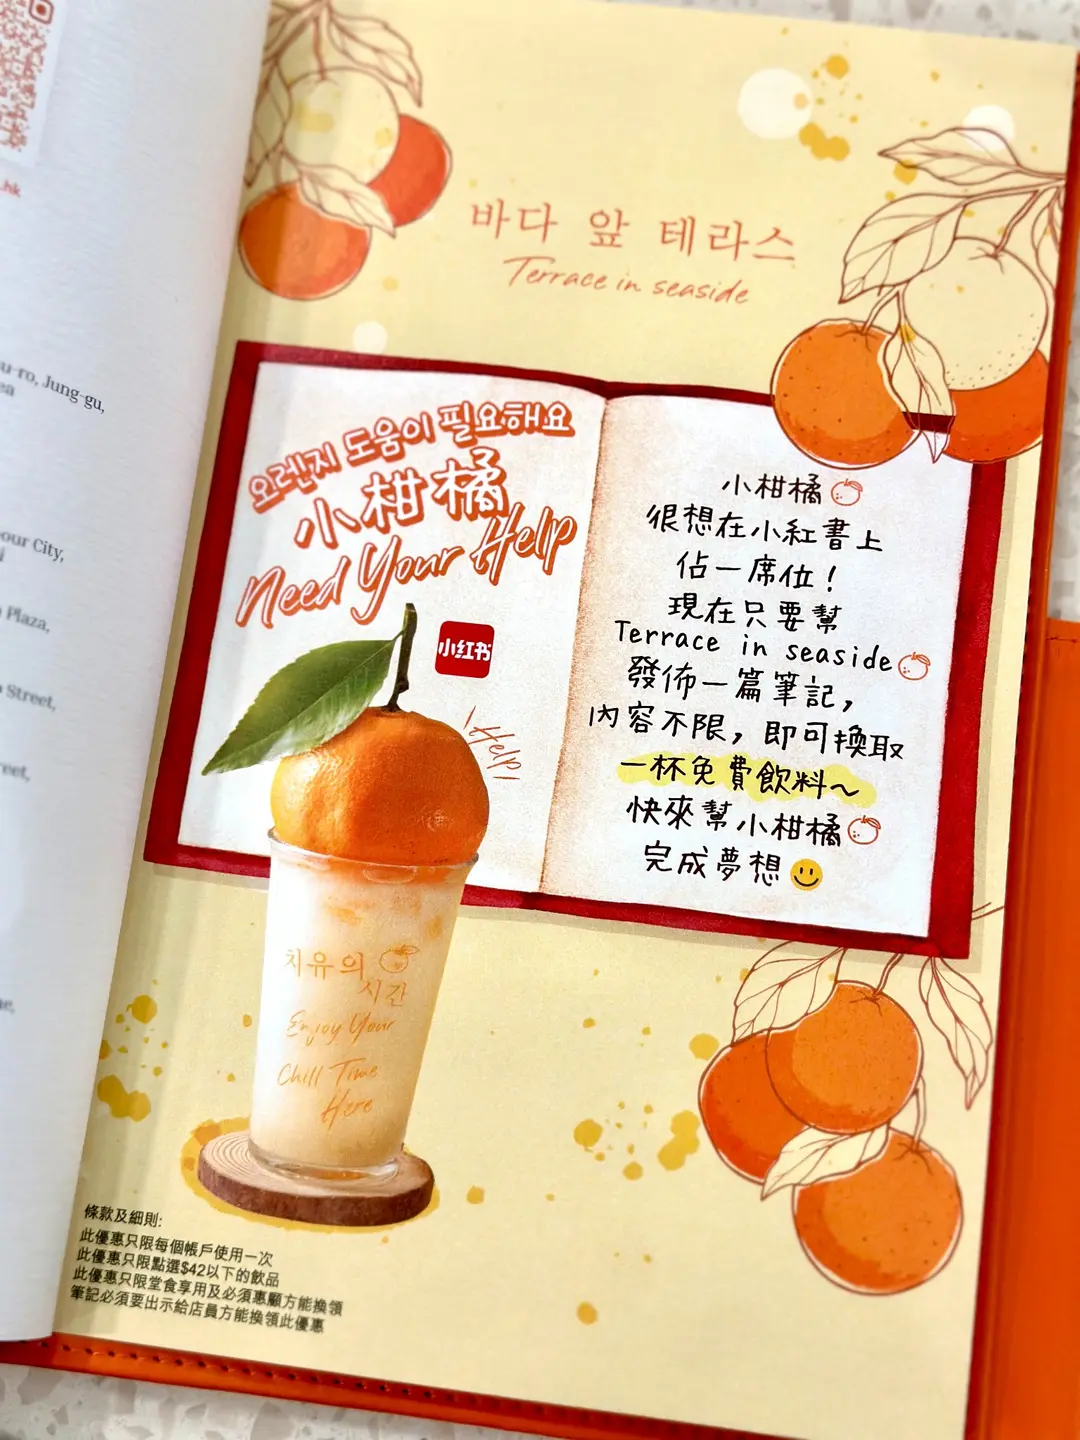 .hk
u-ro, Jung-gu,
our City,
Plaza,
Street,
reet,
바다 앞 테라스
Terrace in seaside
오렌지 도움이 필요해요
小柑橘
Need Your Help
小红书
Help!
小柑橘
很想在小紅書上
佔一席位！
現在只要幫
Terrace in seaside
發佈一篇筆記，
內容不限，即可換取
一杯免費飲料～
快來幫小柑橘
完成夢想
치유의
시간
Enjoy Your
Chill Time
Here
條款及細則:
此優惠只限每個帳戶使用一次
此優惠只限點選$42以下的飲品
此優惠只限堂食享用及必須惠顧方能換領
筆記必須要出示給店員方能換領此優惠